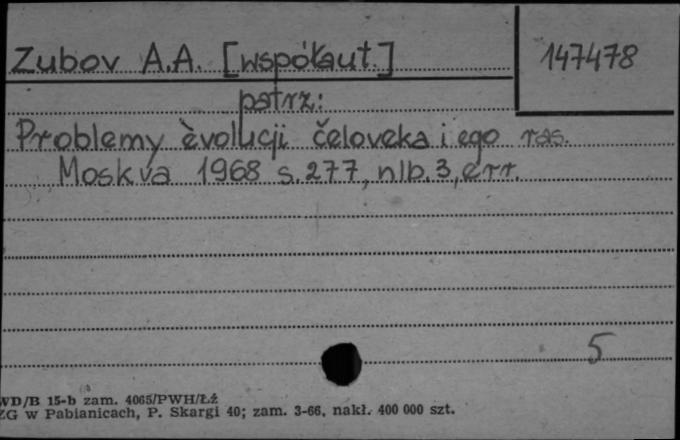 Zubov A.A. [współaut.]
147478
patrz:
Problemy èvolucji čeloveka i ego ras.
Moskva 1968 s. 277, nlb. 3, err.
5
WD/B 15-b zam. 4065/PWH/Łź
ZG w Pabianicach, P. Skargi 40; zam. 3-66, nakł. 400 000 szt.